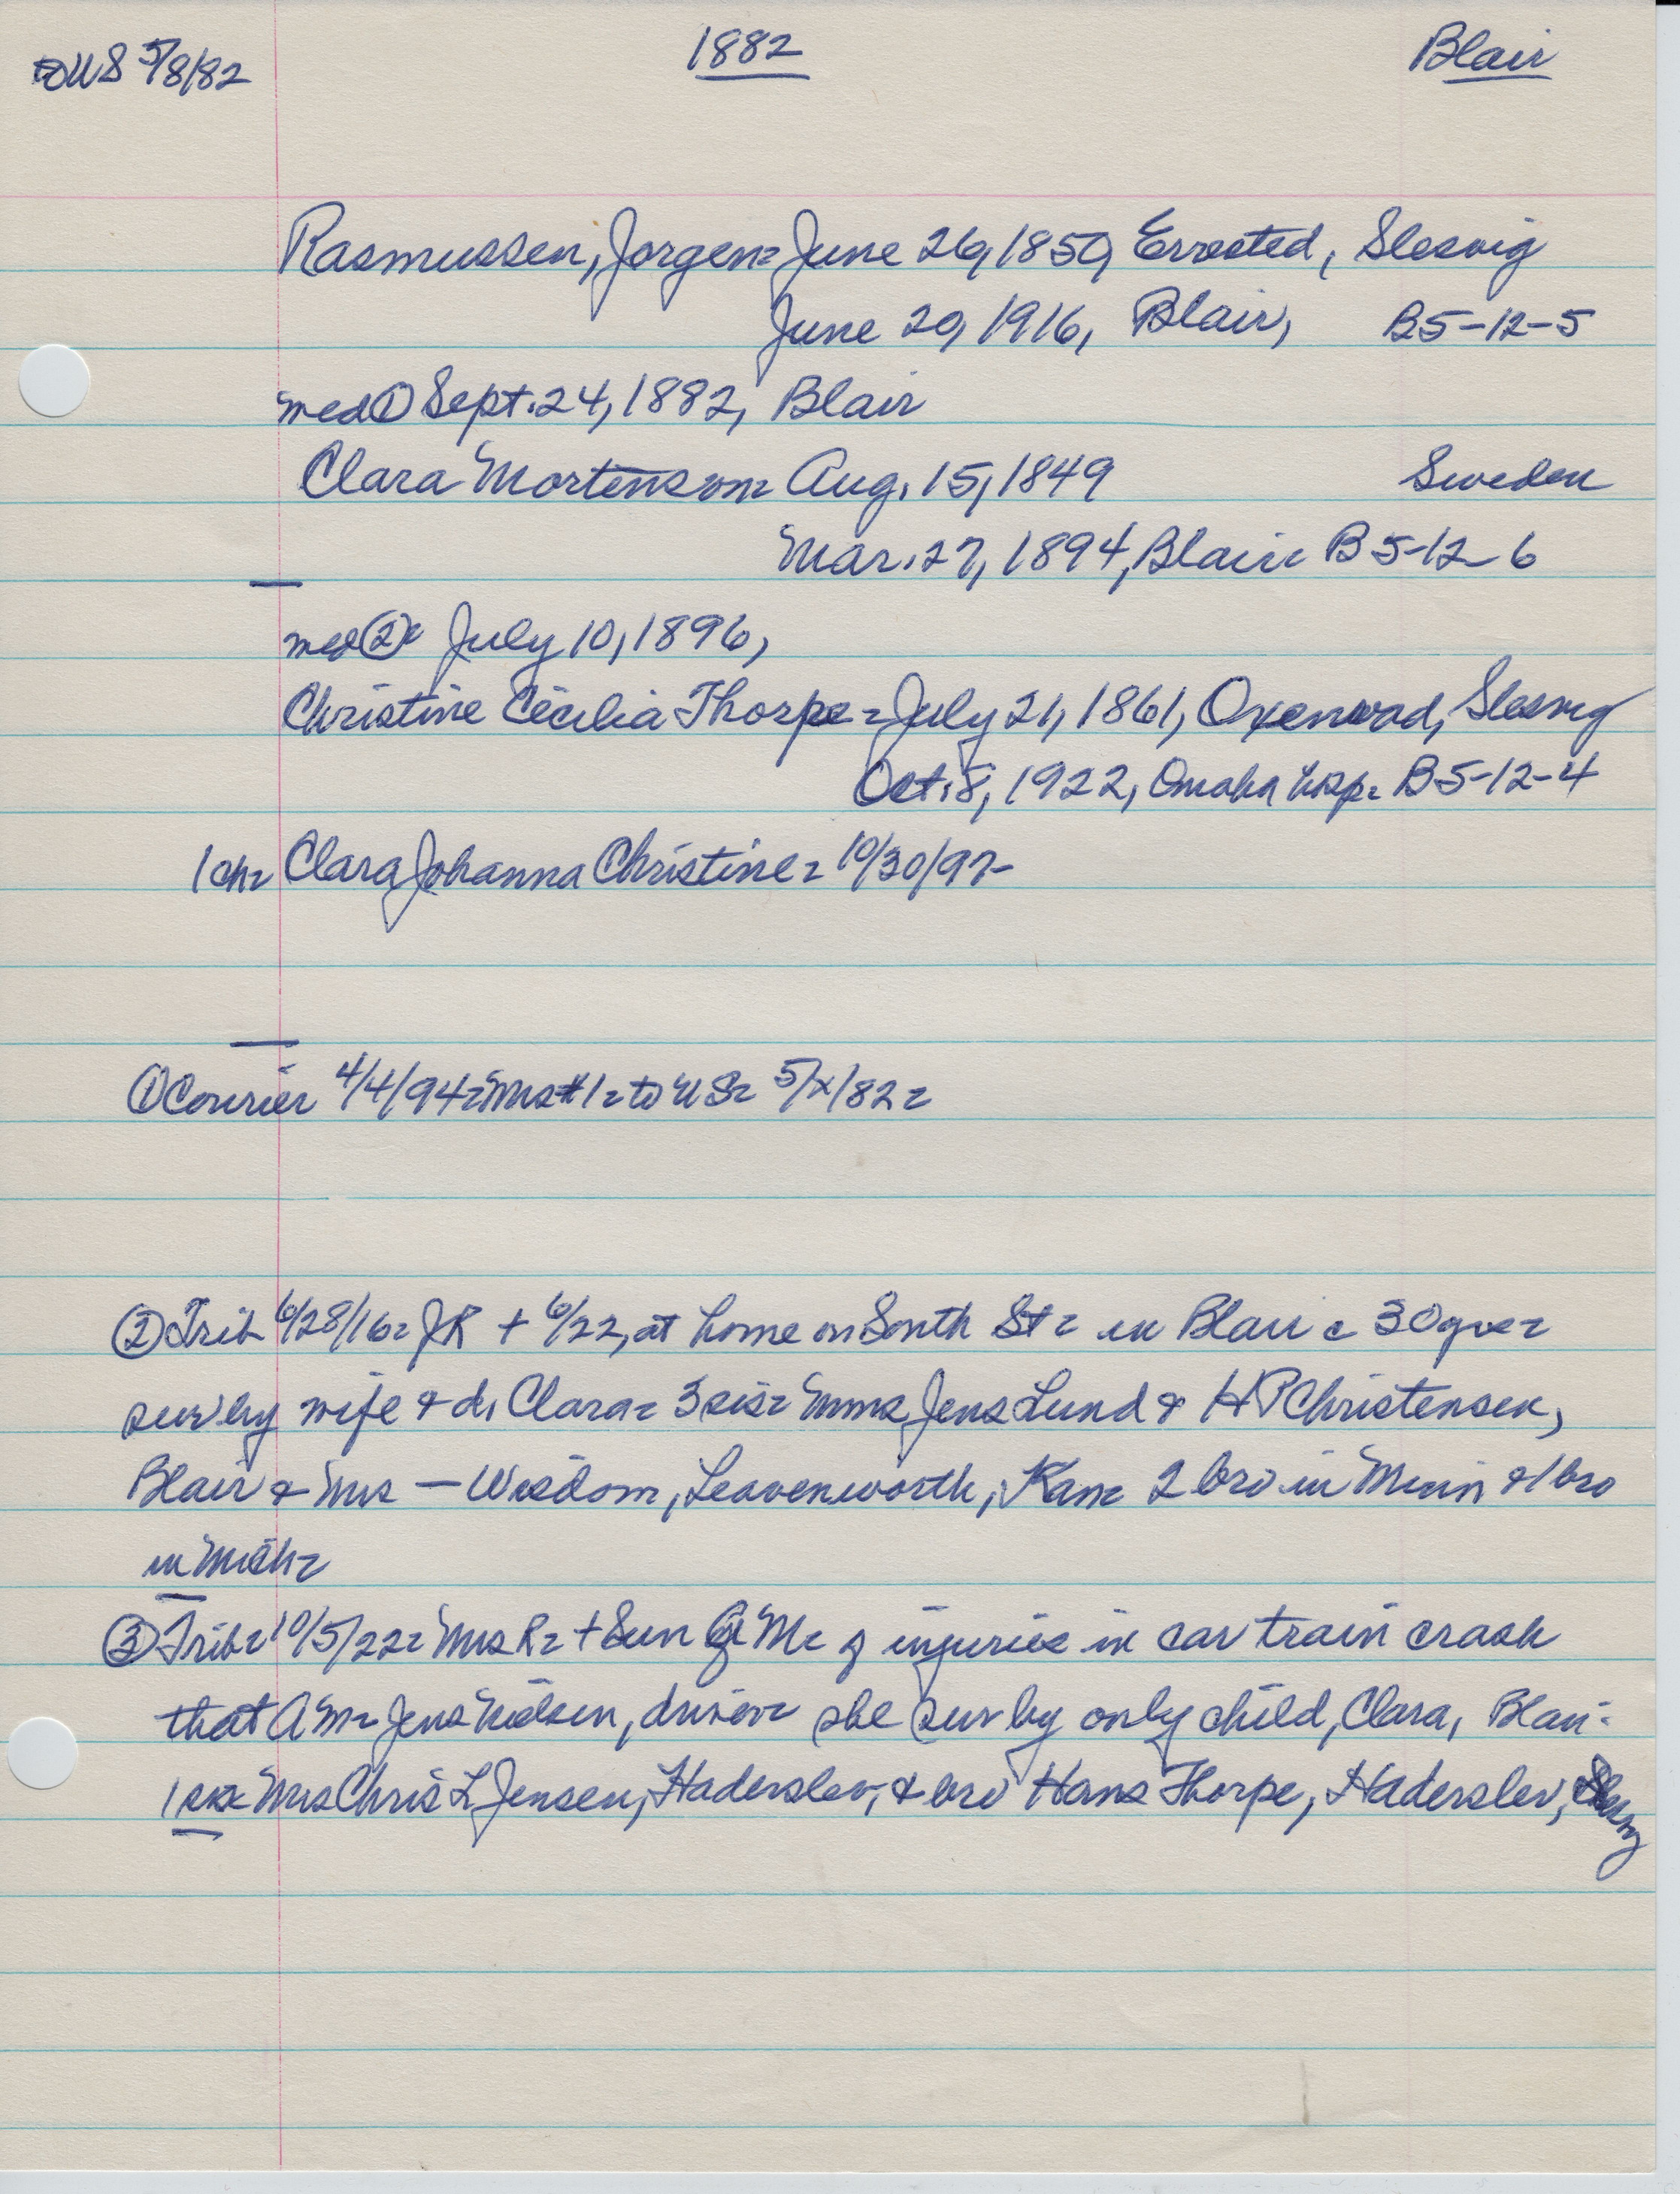 to US 5/8/82
1882
Blair
Rasmussen, Jorgen= June 26, 1850, Errested, Slesvig
June 20, 1916, Blair, B5-12-5
med ① Sept. 24, 1882, Blair
Clara Mortenson= Aug. 15, 1849 Sweden
Mar. 27, 1894, Blair B5-12-6
med ② July 10, 1896,
Christine Cecilia Thorpe = July 21, 1861, Oxenwad, Slesvig
Oct. 8, 1922, Omaha hsp= B5-12-4
1 ch= Clara Johanna Christine = 10/30/97-
① Courier 4/4/94= Mrs #1= to US= 5/x/82=
② Trib 6/28/16= JR + 6/22, at home on South St= in Blair c 30 yrs=
surv by wife & d, Clara= 3 sis= Mmes Jens Lund & HP Christensen,
Blair & Mrs — Wisdom, Leavenworth, Kan= 2 bro in Minn & 1 bro
in Mich=
③ Trib= 10/5/22= Mrs R= + Sun M= of injuries in car train crash
that AM= Jens Nielsen, driver= she surv by only child, Clara, Blair.
1 sis= Mrs Chris L Jensen, Haderslev, & bro Hans Thorpe, Haderslev, Slesvig